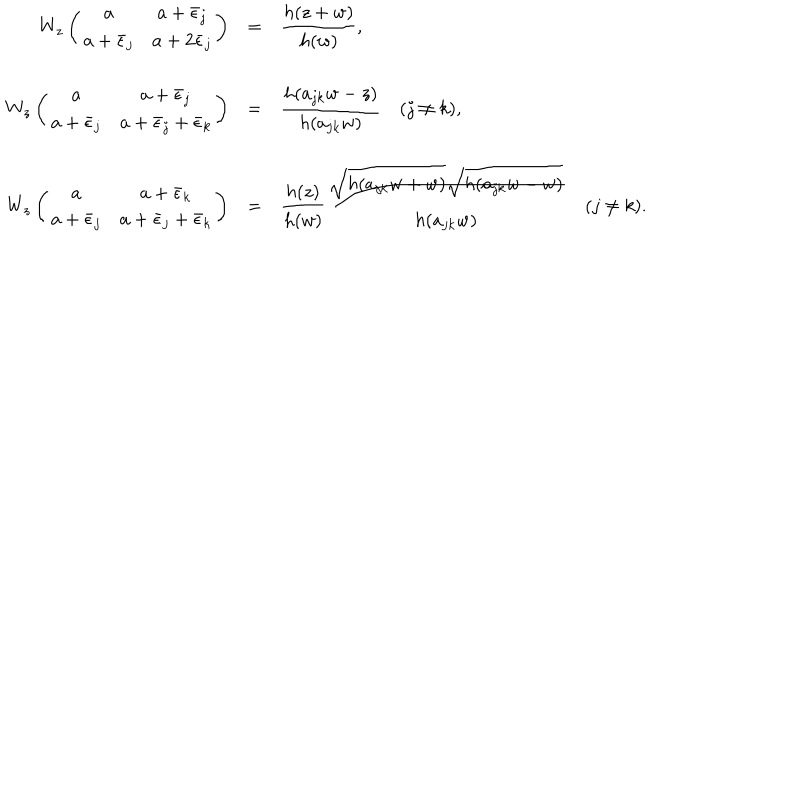 W_z \left( \begin{matrix} a & a + \bar{\epsilon}_j \\ a + \bar{\epsilon}_j & a + 2\bar{\epsilon}_j \end{matrix} \right) = \frac{h(z + w)}{h(w)},
W_z \left( \begin{matrix} a & a + \bar{\epsilon}_j \\ a + \bar{\epsilon}_j & a + \bar{\epsilon}_j + \bar{\epsilon}_k \end{matrix} \right) = \frac{h(a_{jk}w - z)}{h(a_{jk}w)} \quad (j \neq k),
W_z \left( \begin{matrix} a & a + \bar{\epsilon}_k \\ a + \bar{\epsilon}_j & a + \bar{\epsilon}_j + \bar{\epsilon}_k \end{matrix} \right) = \frac{h(z)}{h(w)} \frac{\sqrt{h(a_{jk}w + w)}\sqrt{h(a_{jk}w - w)}}{h(a_{jk}w)} \quad (j \neq k).